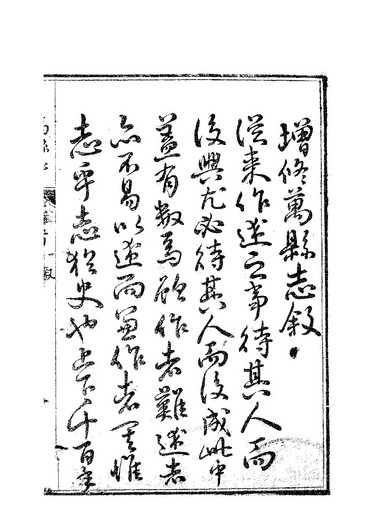 增修萬縣志敘
從來作述之事待其人而
後興尤必待其人而後成此中
蓋有數焉顧作者難述者
亦不易以述而兼作者其惟
志乎志猶史也上下千百年